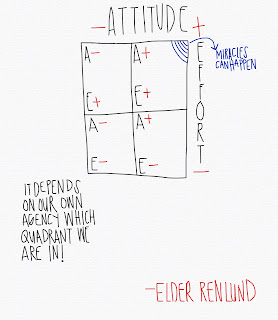 - ATTITUDE +
A- A+
MIRACLES
CAN HAPPEN
E+ E+
A- A+
E- E-
EFFORT -
IT DEPENDS
ON OUR OWN
AGENCY WHICH
QUADRANT WE
ARE IN!
-ELDER RENLUND